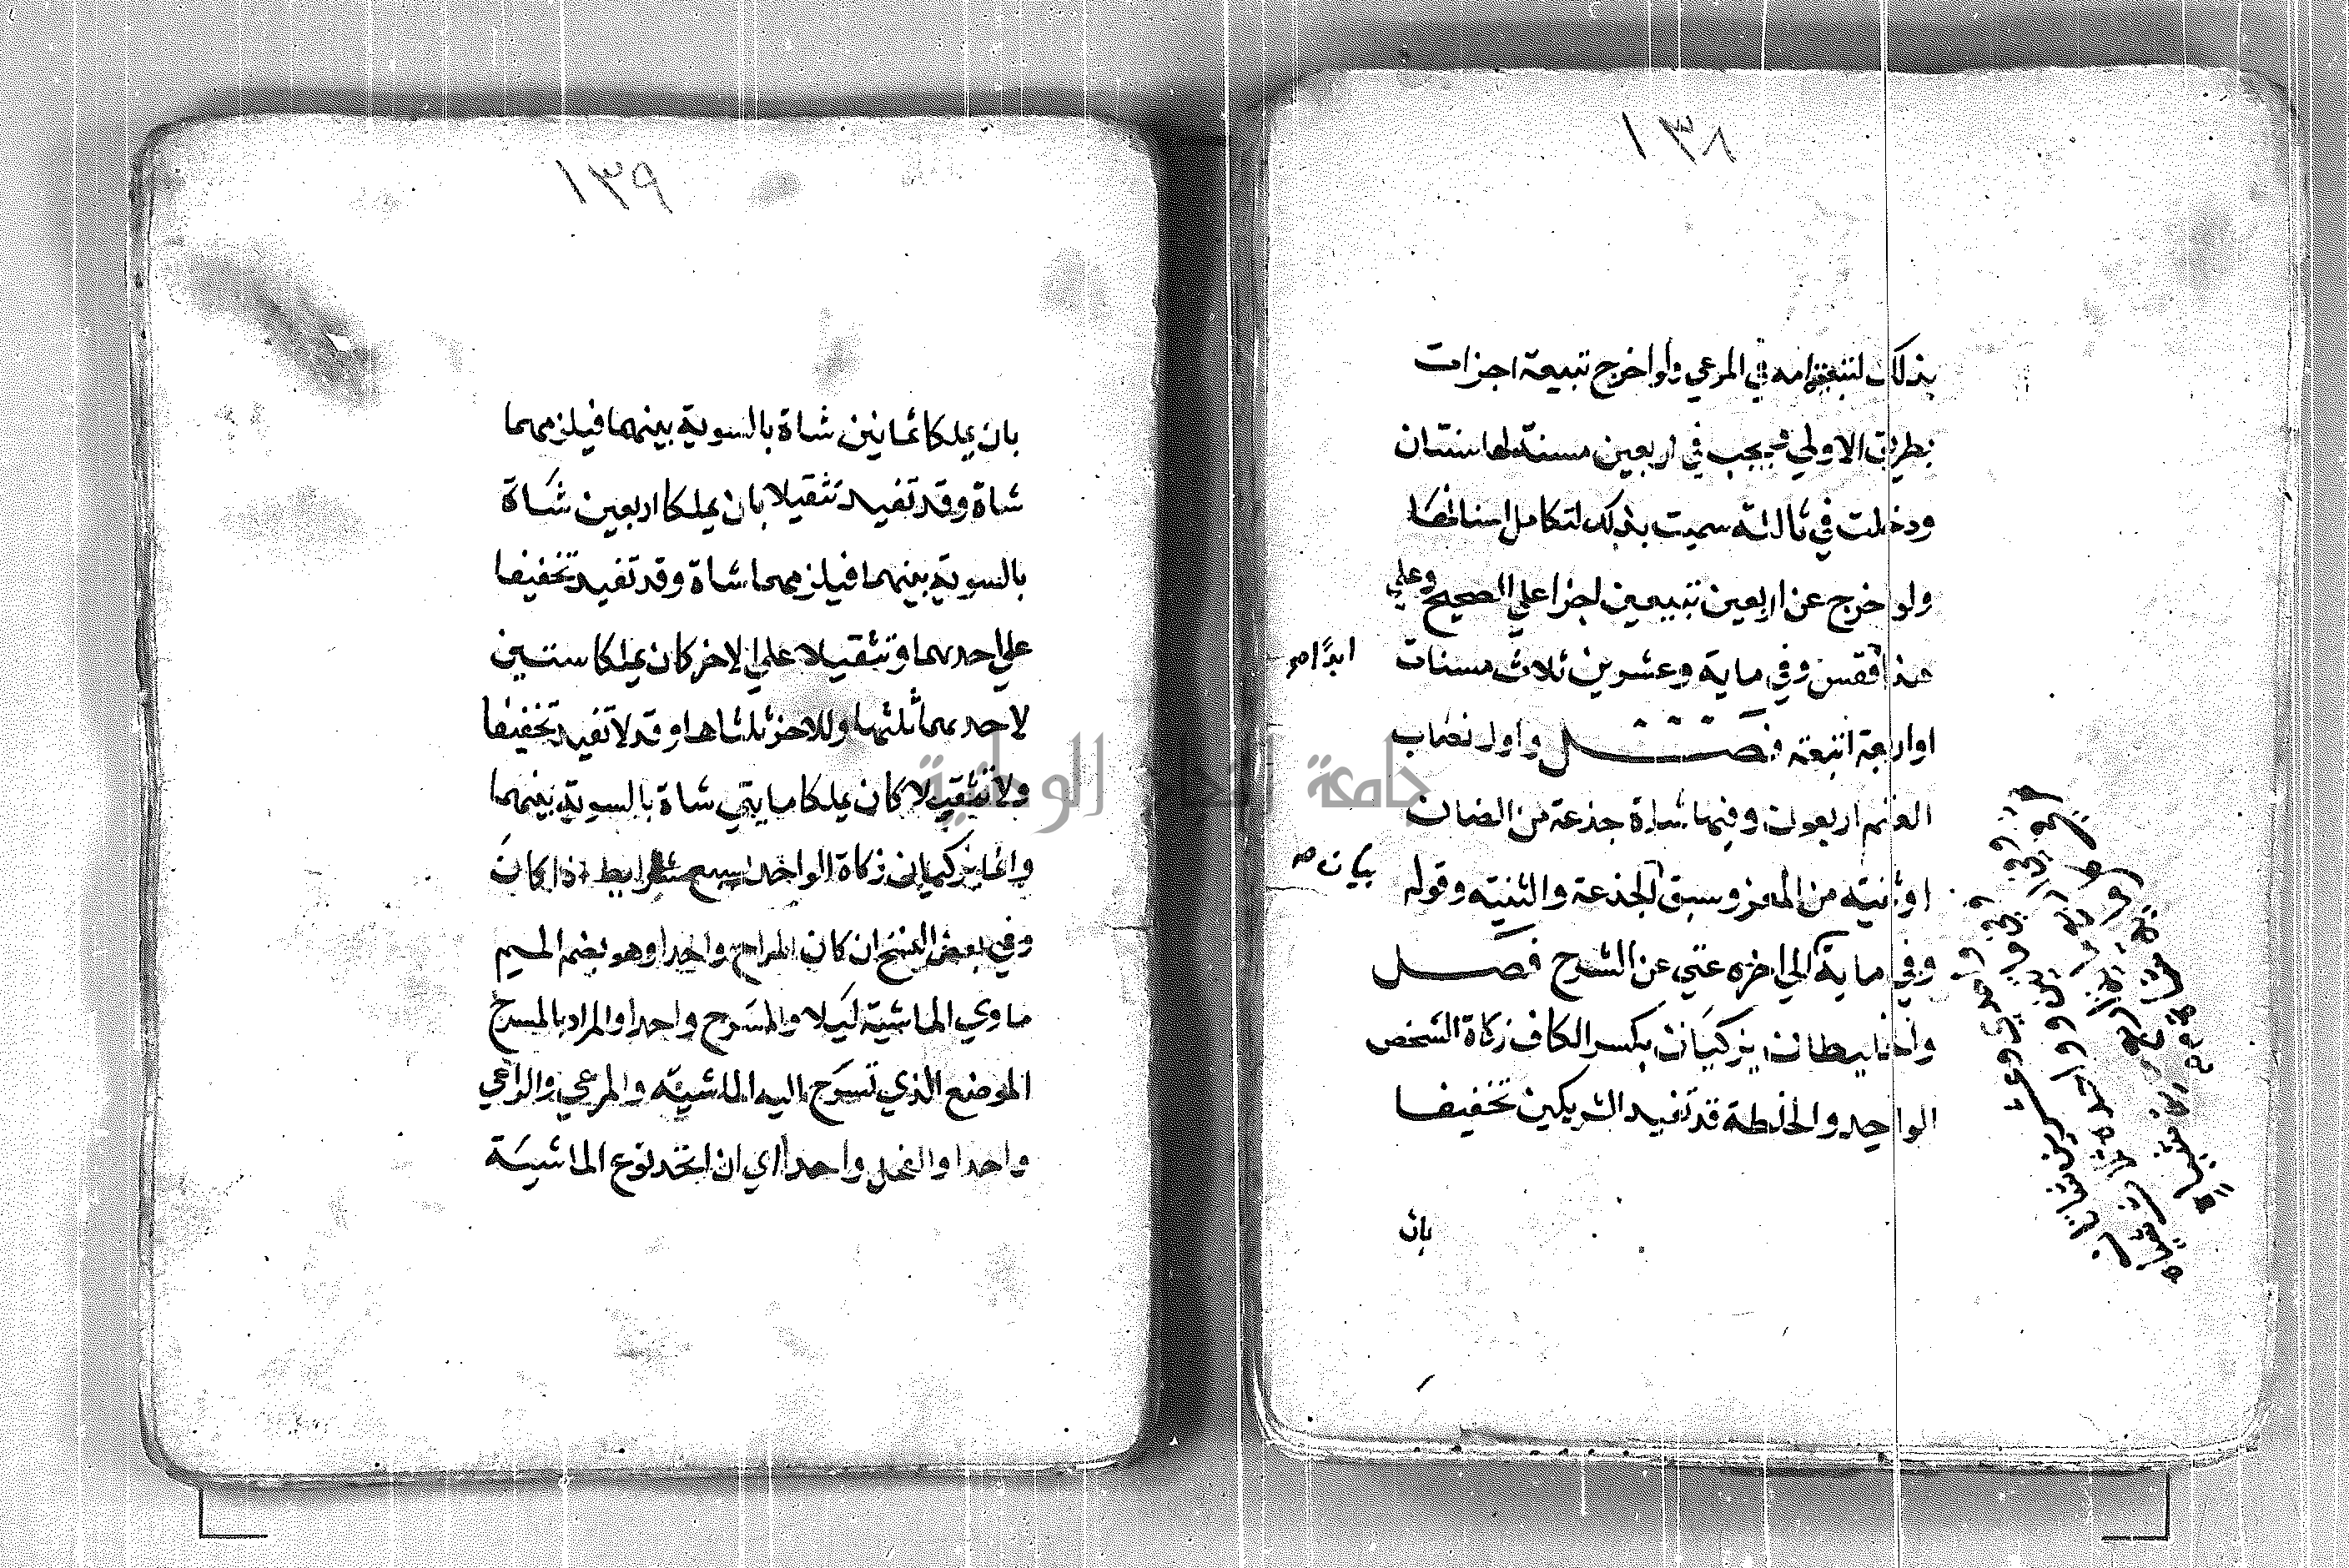 ١٣٨
بذلك لتبعه امه في المرعي ولو اخرج تبيعة اجزات
بطريق الاولي ثم يجب في اربعين مسنة لها سنتان
ودخلت في ثالثه سميت بذلك لتكامل اسنانها
ولو خرج عن اربعين تبيعين اجزا علي الصحيح وعلي
هذا فقس وفي ماية وعشرين ثلاث مسنات
ابدا
او اربعة اتبعه فصل واول نصاب
الغنم اربعون وفيها شاة جذعة من الضان
او ثنيه من المعز وسبق الجذعة والثنيه وقوله
بيان
وفي ماية الي اخره غني عن الشرح فصل
والخليطان يزكيان بكسر الكاف زكاة الشخص
الواحد والخلطة قد تفيد الشريكين تخفيفا
بان
١٣٩
بان يملكا ثمانين شاة بالسوية بينهما فيلزمهما
شاة وقد تفيد تثقيلا بان يملكا اربعين شاة
بالسوية بينهما فيلزمهما شاة وقد تفيد تخفيفا
علي احدهما وتثقيلا علي الاخر كان يملكا ستين
لاحدهما ثلثها وللاخر ثلثاها وقد لا تفيد تخفيفا
ولا تثقيلا كان يملكا مايتي شاة بالسوية بينهما
وانما يزكيان زكاة الواحد بسبع شرايط اذا كان
وفي بعض النسخ ان كان المراح واحدا وهو بضم الميم
ماوي الماشية ليلا والمسرح واحدا والمراد بالمسرح
الموضع الذي تسرح اليه الماشيه والمرعي والراعي
واحدا والفحل واحدا اي ان اتحد نوع الماشية
جامعة النجاح الوطنية